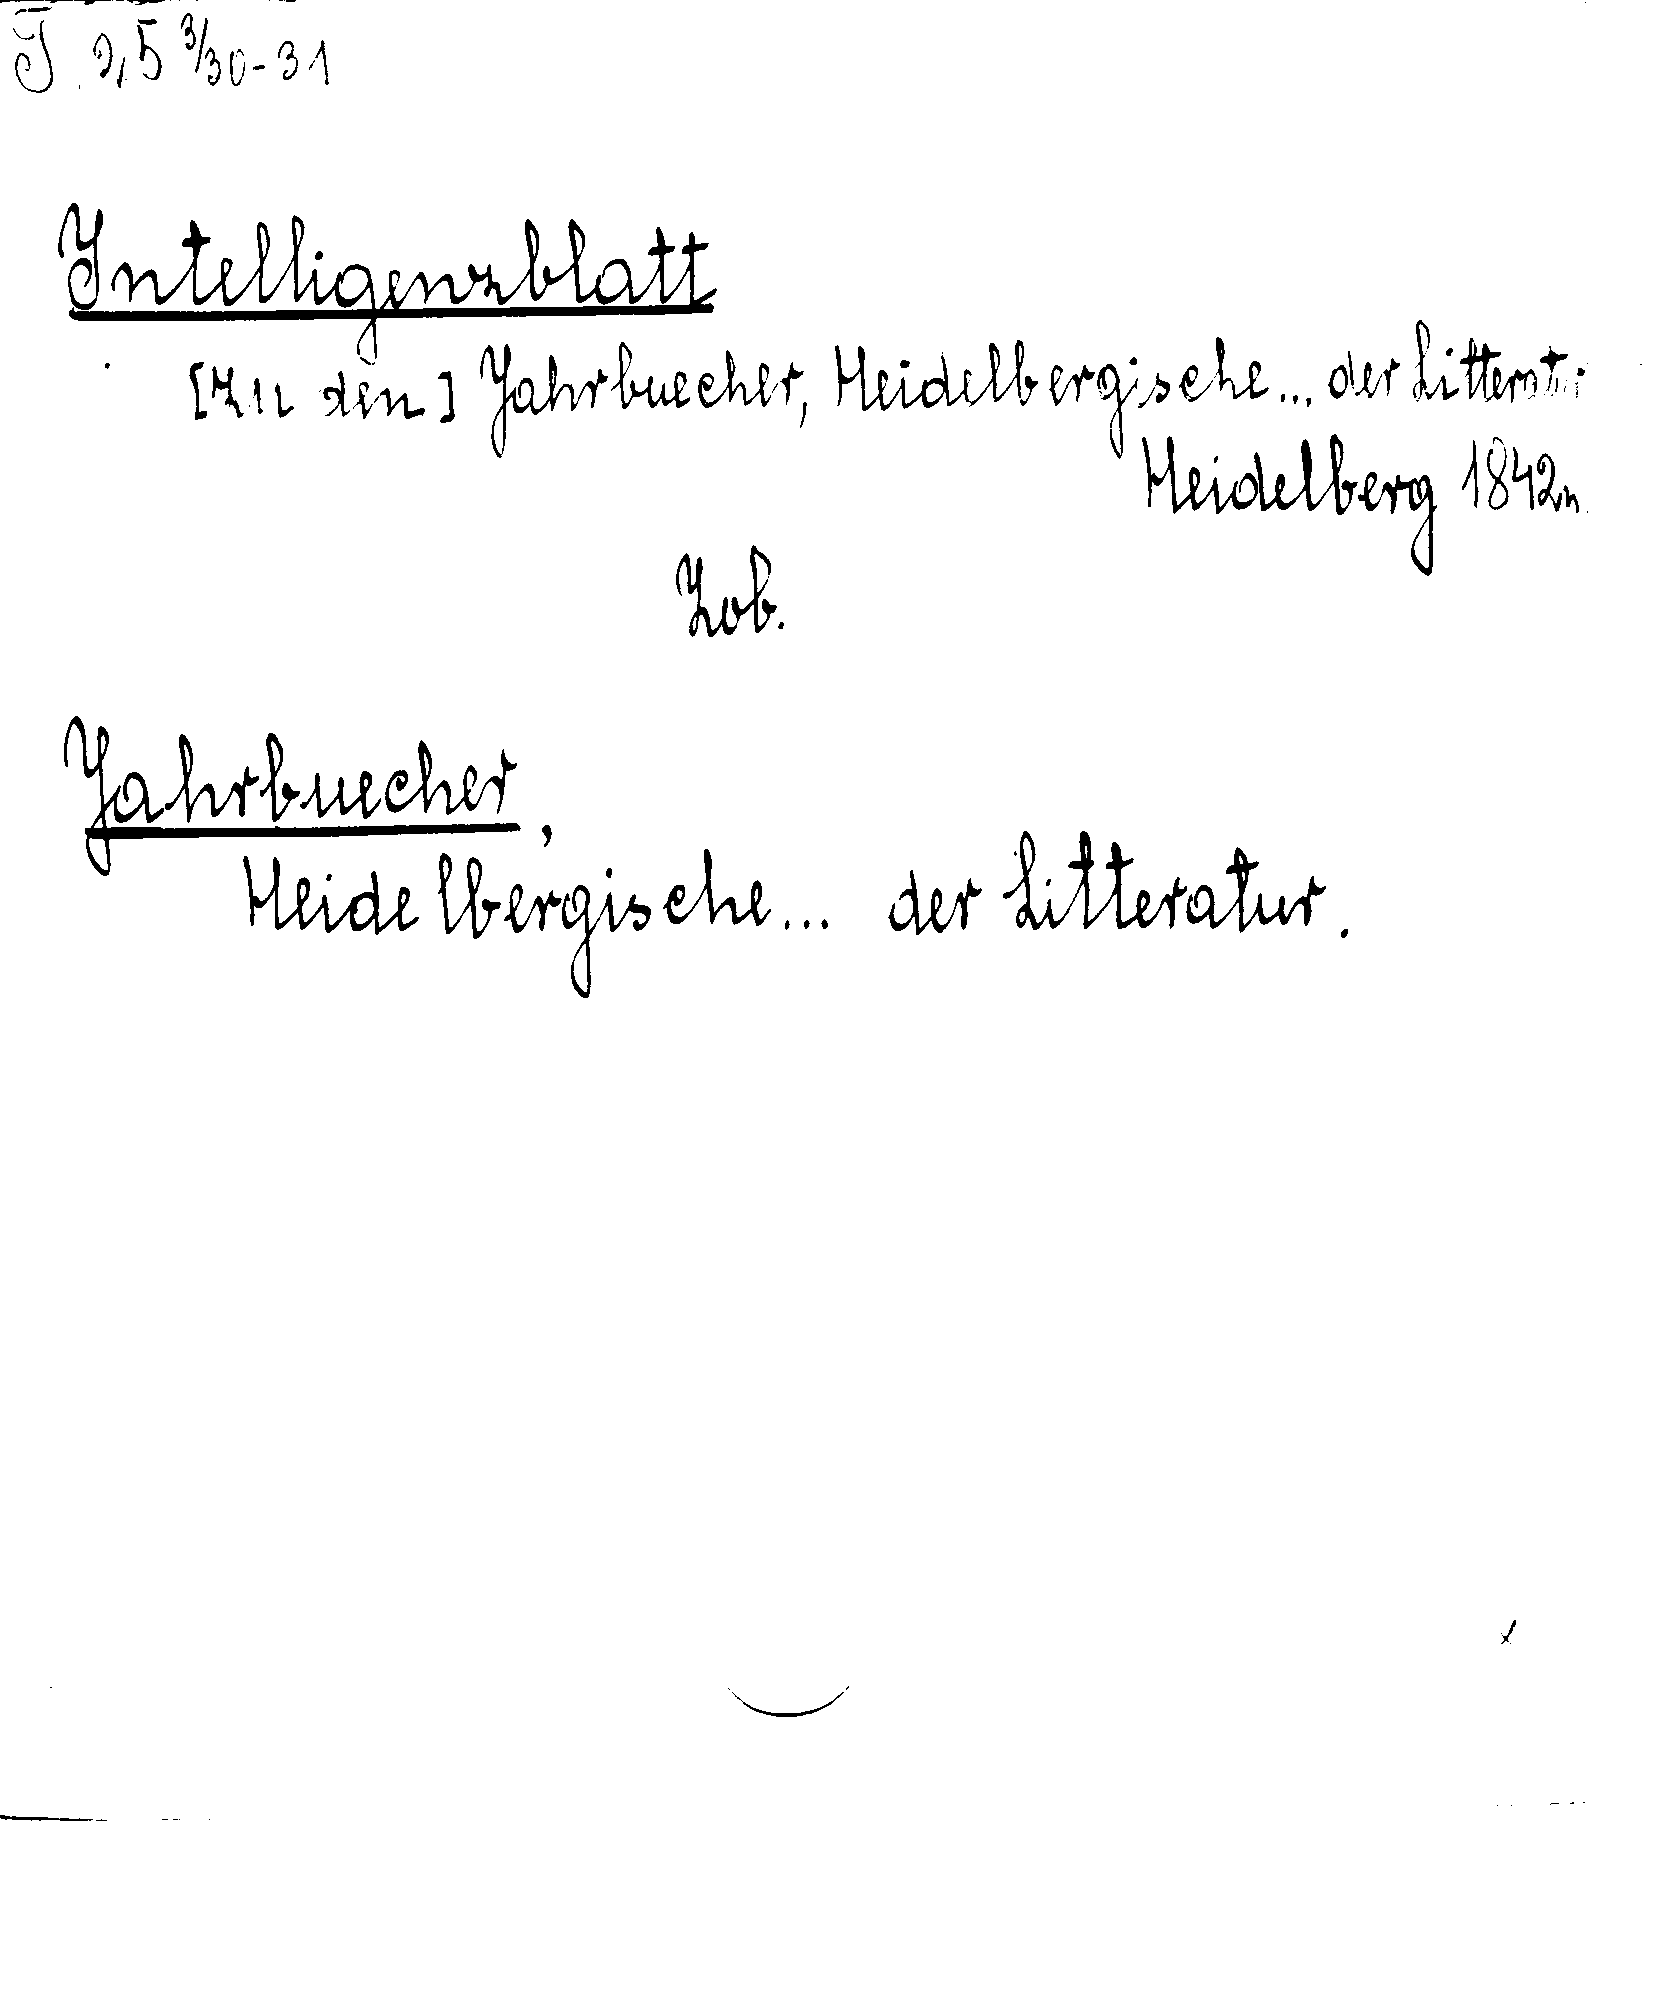 J. 2,5 3/30-31
Intelligenzblatt
[Zu den] Jahrbuecher, Heidelbergische... der Litteratur
Heidelberg 1842n.
Zob.
Jahrbuecher,
Heidelbergische... der Litteratur.